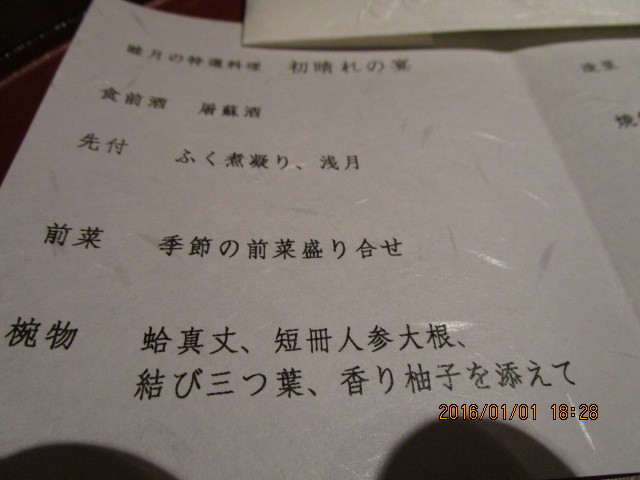 睦月の特選料理　初晴れの宴
食前酒　屠蘇酒
先付　ふく煮凝り、浅月
前菜　季節の前菜盛り合せ
椀物　蛤真丈、短冊人参大根、
結び三つ葉、香り柚子を添えて
2016/01/01 18:28